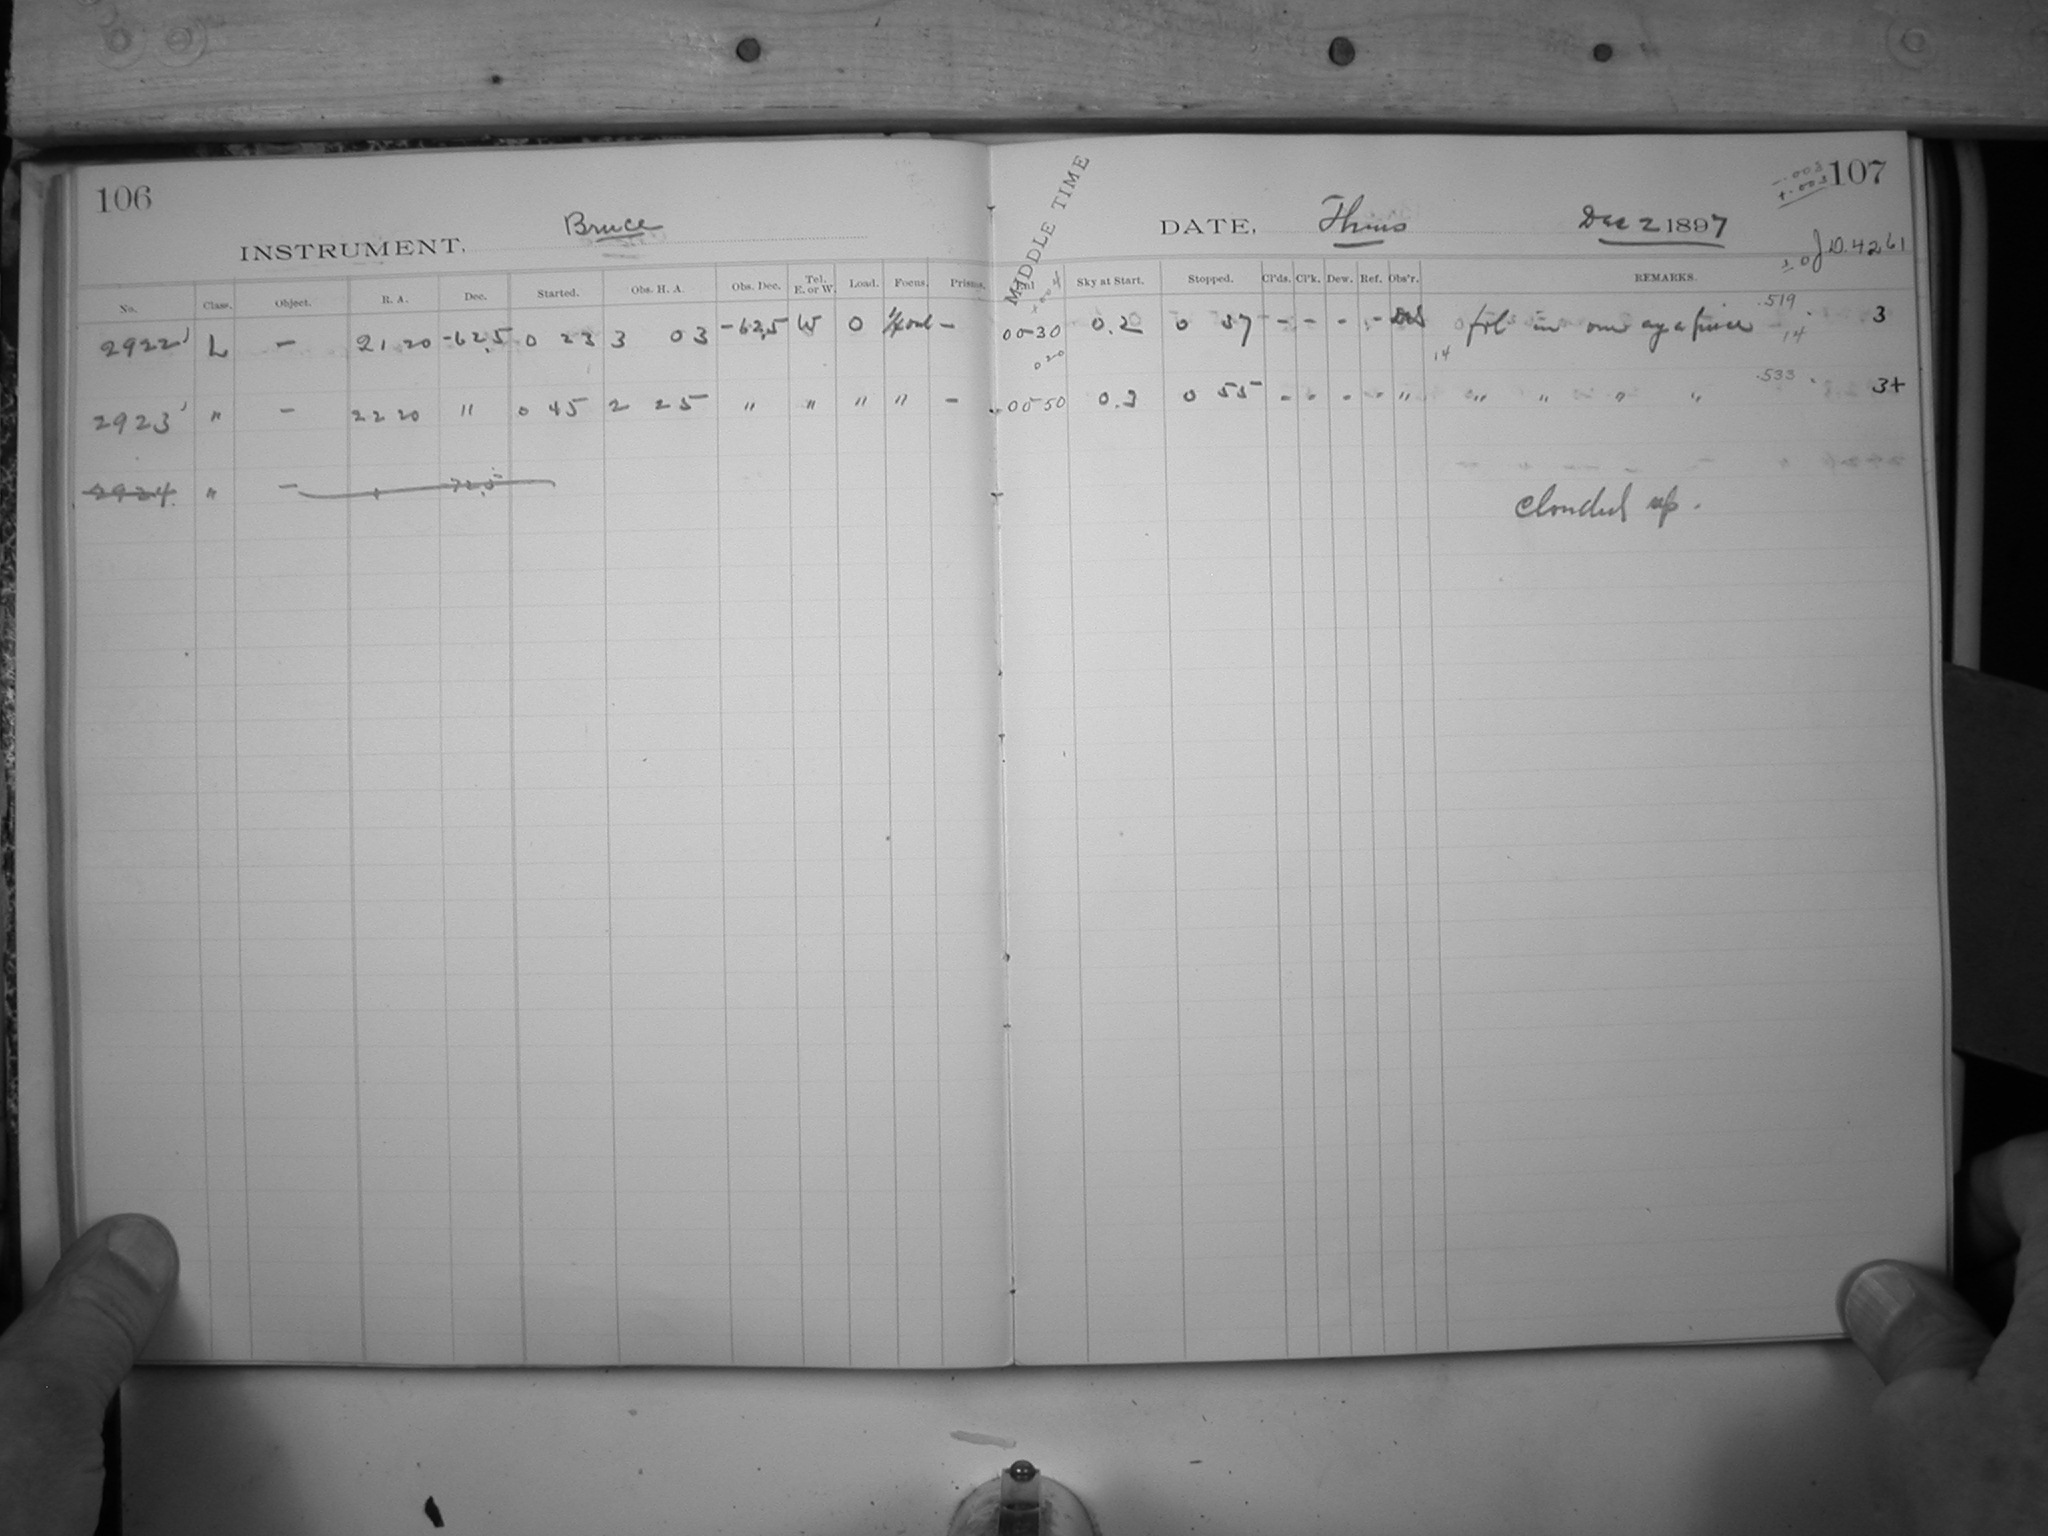 106
INSTRUMENT, Bruce
No. Class. Object. R. A. Dec. Started. Obs. H. A. Obs. Dec. Tel. E. or W. Load. Focus. Prisms.
2922 L - 21 20 -62.5 0 23 3 03 -62.5 W 0 -
2923 " - 22 20 " 0 45 2 25 " " " " -
2924 " - 72.5
MIDDLE TIME
107
-.003
+.003
DATE, Thurs Dec 2 1897
J.D. 4261
Sky at Start. Stopped. Cl'ds. Cl'k. Dew. Ref. Obs'r. REMARKS.
00 30 0.2 0 37 - - - - in one .519 3
0 20 14 14
00 50 0.3 0 55 - - - - " " " " " .533 3+
clouded up.